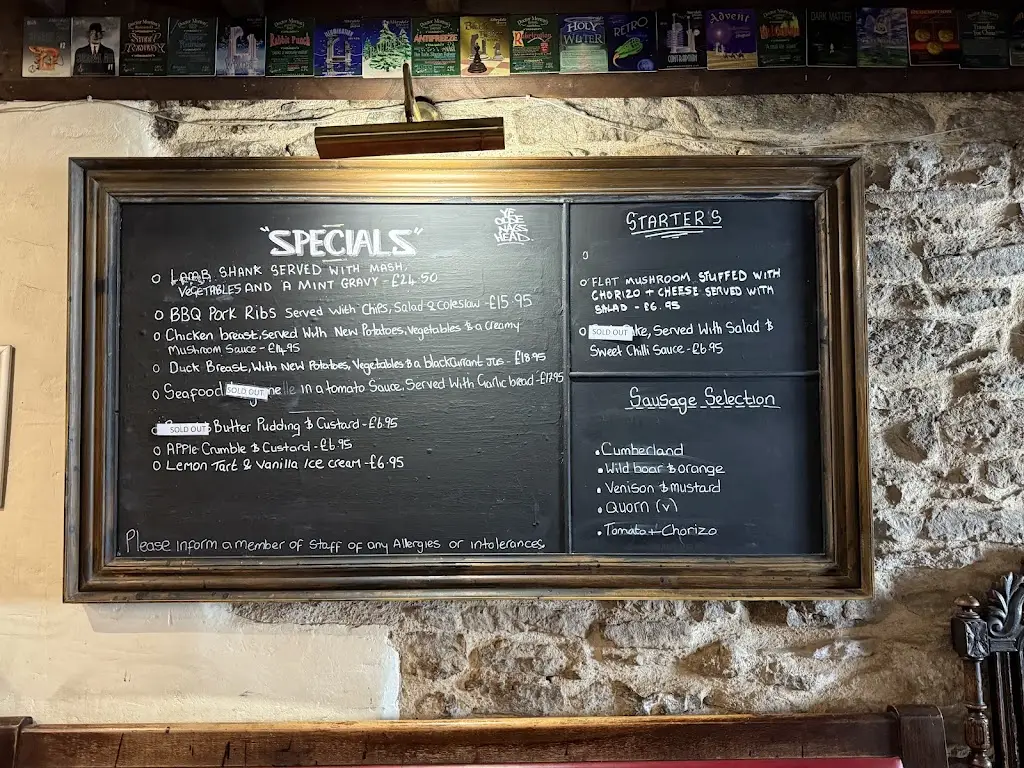 Rabbit Punch
ANTIFREEZE
HOLY WATER
RETRO
Advent
DARK MATTER
"SPECIALS"
YE
OLDE
NAGS
HEAD.
LAMB SHANK SERVED WITH MASH.
VEGETABLES AND A MINT GRAVY - £24.50
BBQ Pork Ribs Served With Chips, Salad & Coleslaw - £15.95
Chicken breast, served With New Potatoes, Vegetables & a Creamy
Mushroom Sauce - £14.95
Duck Breast, With New Potatoes, Vegetables & a blackCurrant Jus - £18.95
Seafood SOLD OUT nelle in a tomato Sauce. Served With Garlic bread - £17.95
SOLD OUT Butter Pudding & Custard - £6.95
APPle Crumble & Custard - £6.95
Lemon Tart & Vanilla Ice cream - £6.95
Please inform a member of Staff of any Allergies or intolerances
STARTERS
FLAT MUSHROOM STUFFED WITH
CHORIZO + CHEESE SERVED WITH
SALAD - £6.95
SOLD OUT ke, Served With Salad &
Sweet Chilli Sauce - £6.95
Sausage Selection
Cumberland
Wild boar & orange
Venison & mustard
Quorn (v)
Tomato + Chorizo